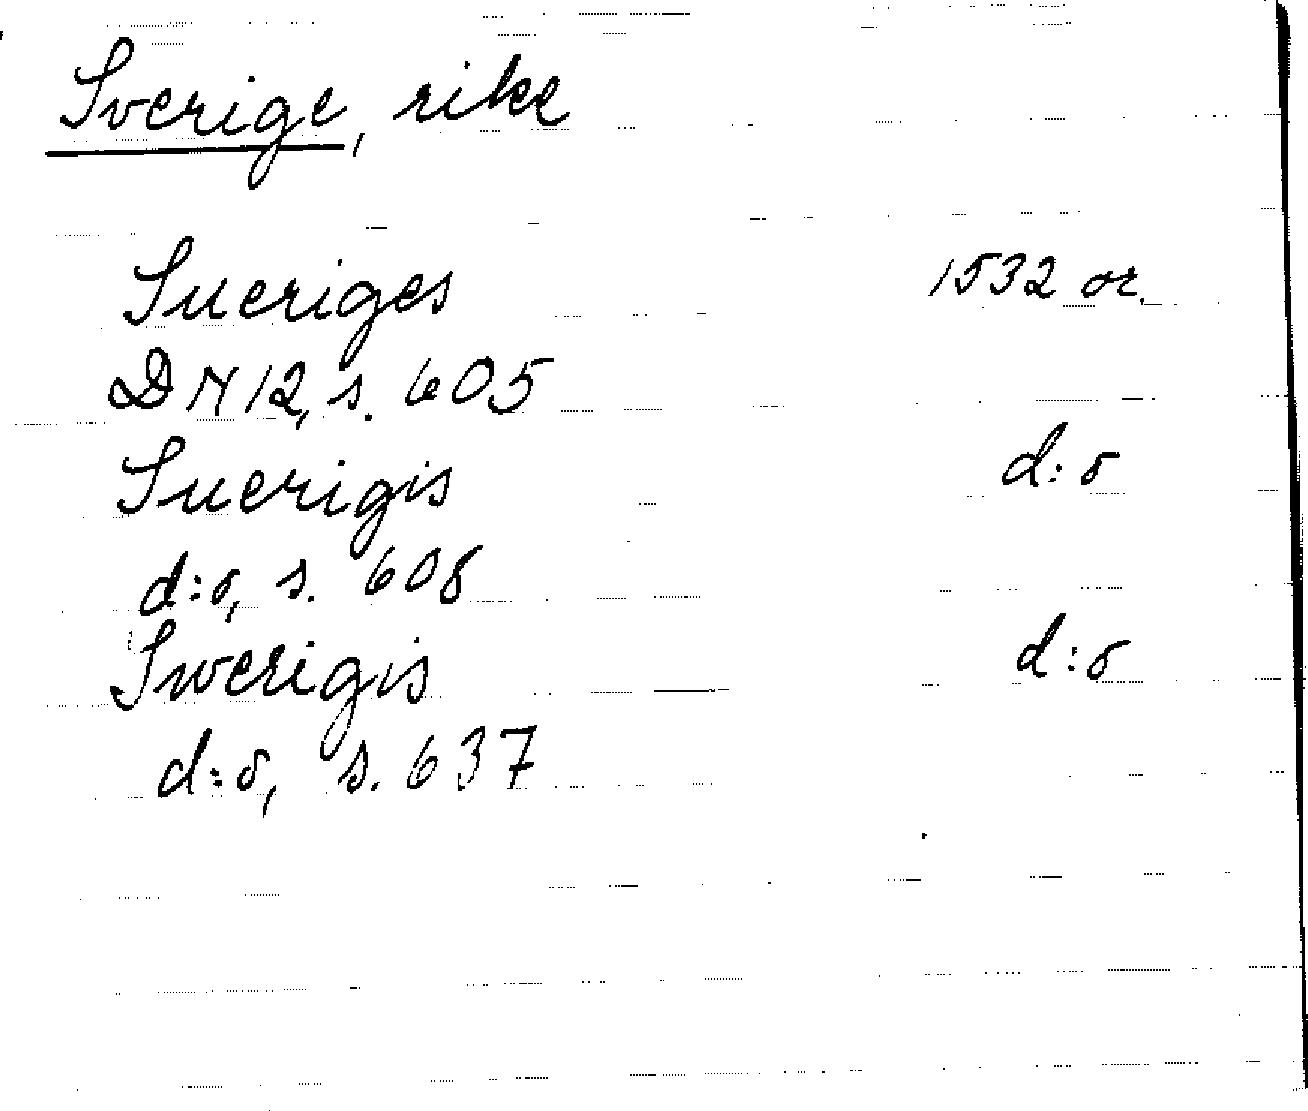 Sverige, rike
Sueriges 1532 or.
DN 12, s. 605
Suerigis d:o
d:o, s. 608
Swerigis d:o
d:o, s. 637